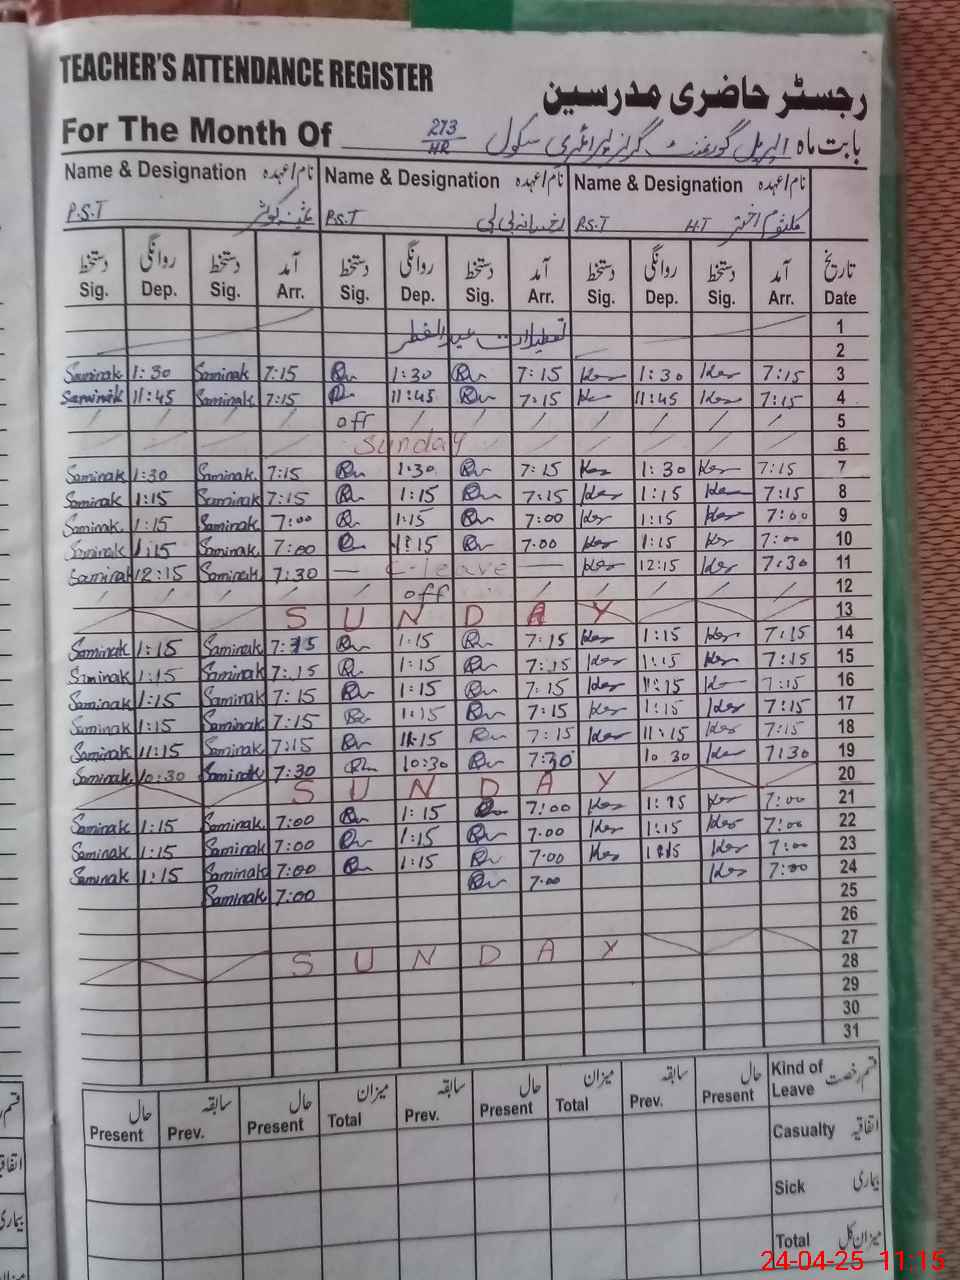 TEACHER'S ATTENDANCE REGISTER
رجسٹر حاضری مدرسین
For The Month Of 273/HR بابت ماہ اپریل گورنمنٹ گرلز پرائمری سکول
Name & Designation نام/عہدہ Name & Designation نام/عہدہ Name & Designation نام/عہدہ
P.S.T P.S.T رخسانہ بی بی P.S.T H.T کلثوم اختر
دستخط روانگی دستخط آمد دستخط روانگی دستخط آمد دستخط روانگی دستخط آمد تاریخ
Sig. Dep. Sig. Arr. Sig. Dep. Sig. Arr. Sig. Dep. Sig. Arr. Date
تعطیلات عید الفطر 1
2
Saminak 1:30 Saminak 7:15 1:30 7:15 1:30 7:15 3
Saminak 11:45 Saminak 7:15 11:45 7:15 11:45 7:15 4
off 5
Sunday 6
Saminak 1:30 Saminak 7:15 1:30 7:15 1:30 7:15 7
Saminak 1:15 Saminak 7:15 1:15 7:15 1:15 7:15 8
Saminak 1:15 Saminak 7:00 1:15 7:00 1:15 7:00 9
Saminak 1:15 Saminak 7:00 1:15 7:00 1:15 7:00 10
Saminak 12:15 Saminak 7:30 — C-leave — 12:15 7:30 11
off 12
SUNDAY 13
Saminak 1:15 Saminak 7:15 1:15 7:15 1:15 7:15 14
Saminak 1:15 Saminak 7:15 1:15 7:15 1:15 7:15 15
Saminak 1:15 Saminak 7:15 1:15 7:15 1:15 7:15 16
Saminak 1:15 Saminak 7:15 1:15 7:15 1:15 7:15 17
Saminak 11:15 Saminak 7:15 11:15 7:15 11:15 7:15 18
Saminak 10:30 Saminak 7:30 10:30 7:30 10:30 7:30 19
SUNDAY 20
Saminak 1:15 Saminak 7:00 1:15 7:00 1:15 7:00 21
Saminak 1:15 Saminak 7:00 1:15 7:00 1:15 7:00 22
Saminak 1:15 Saminak 7:00 1:15 7:00 1:15 7:00 23
Saminak 7:00 7:00 7:00 24
25
26
SUNDAY 27
28
29
30
31
حال سابقہ حال میزان سابقہ حال میزان سابقہ حال قسم رخصت
Present Prev. Present Total Prev. Present Total Prev. Present Kind of Leave
Casualty اتفاقیہ
Sick بیماری
Total میزان کل
24-04-25 11:15